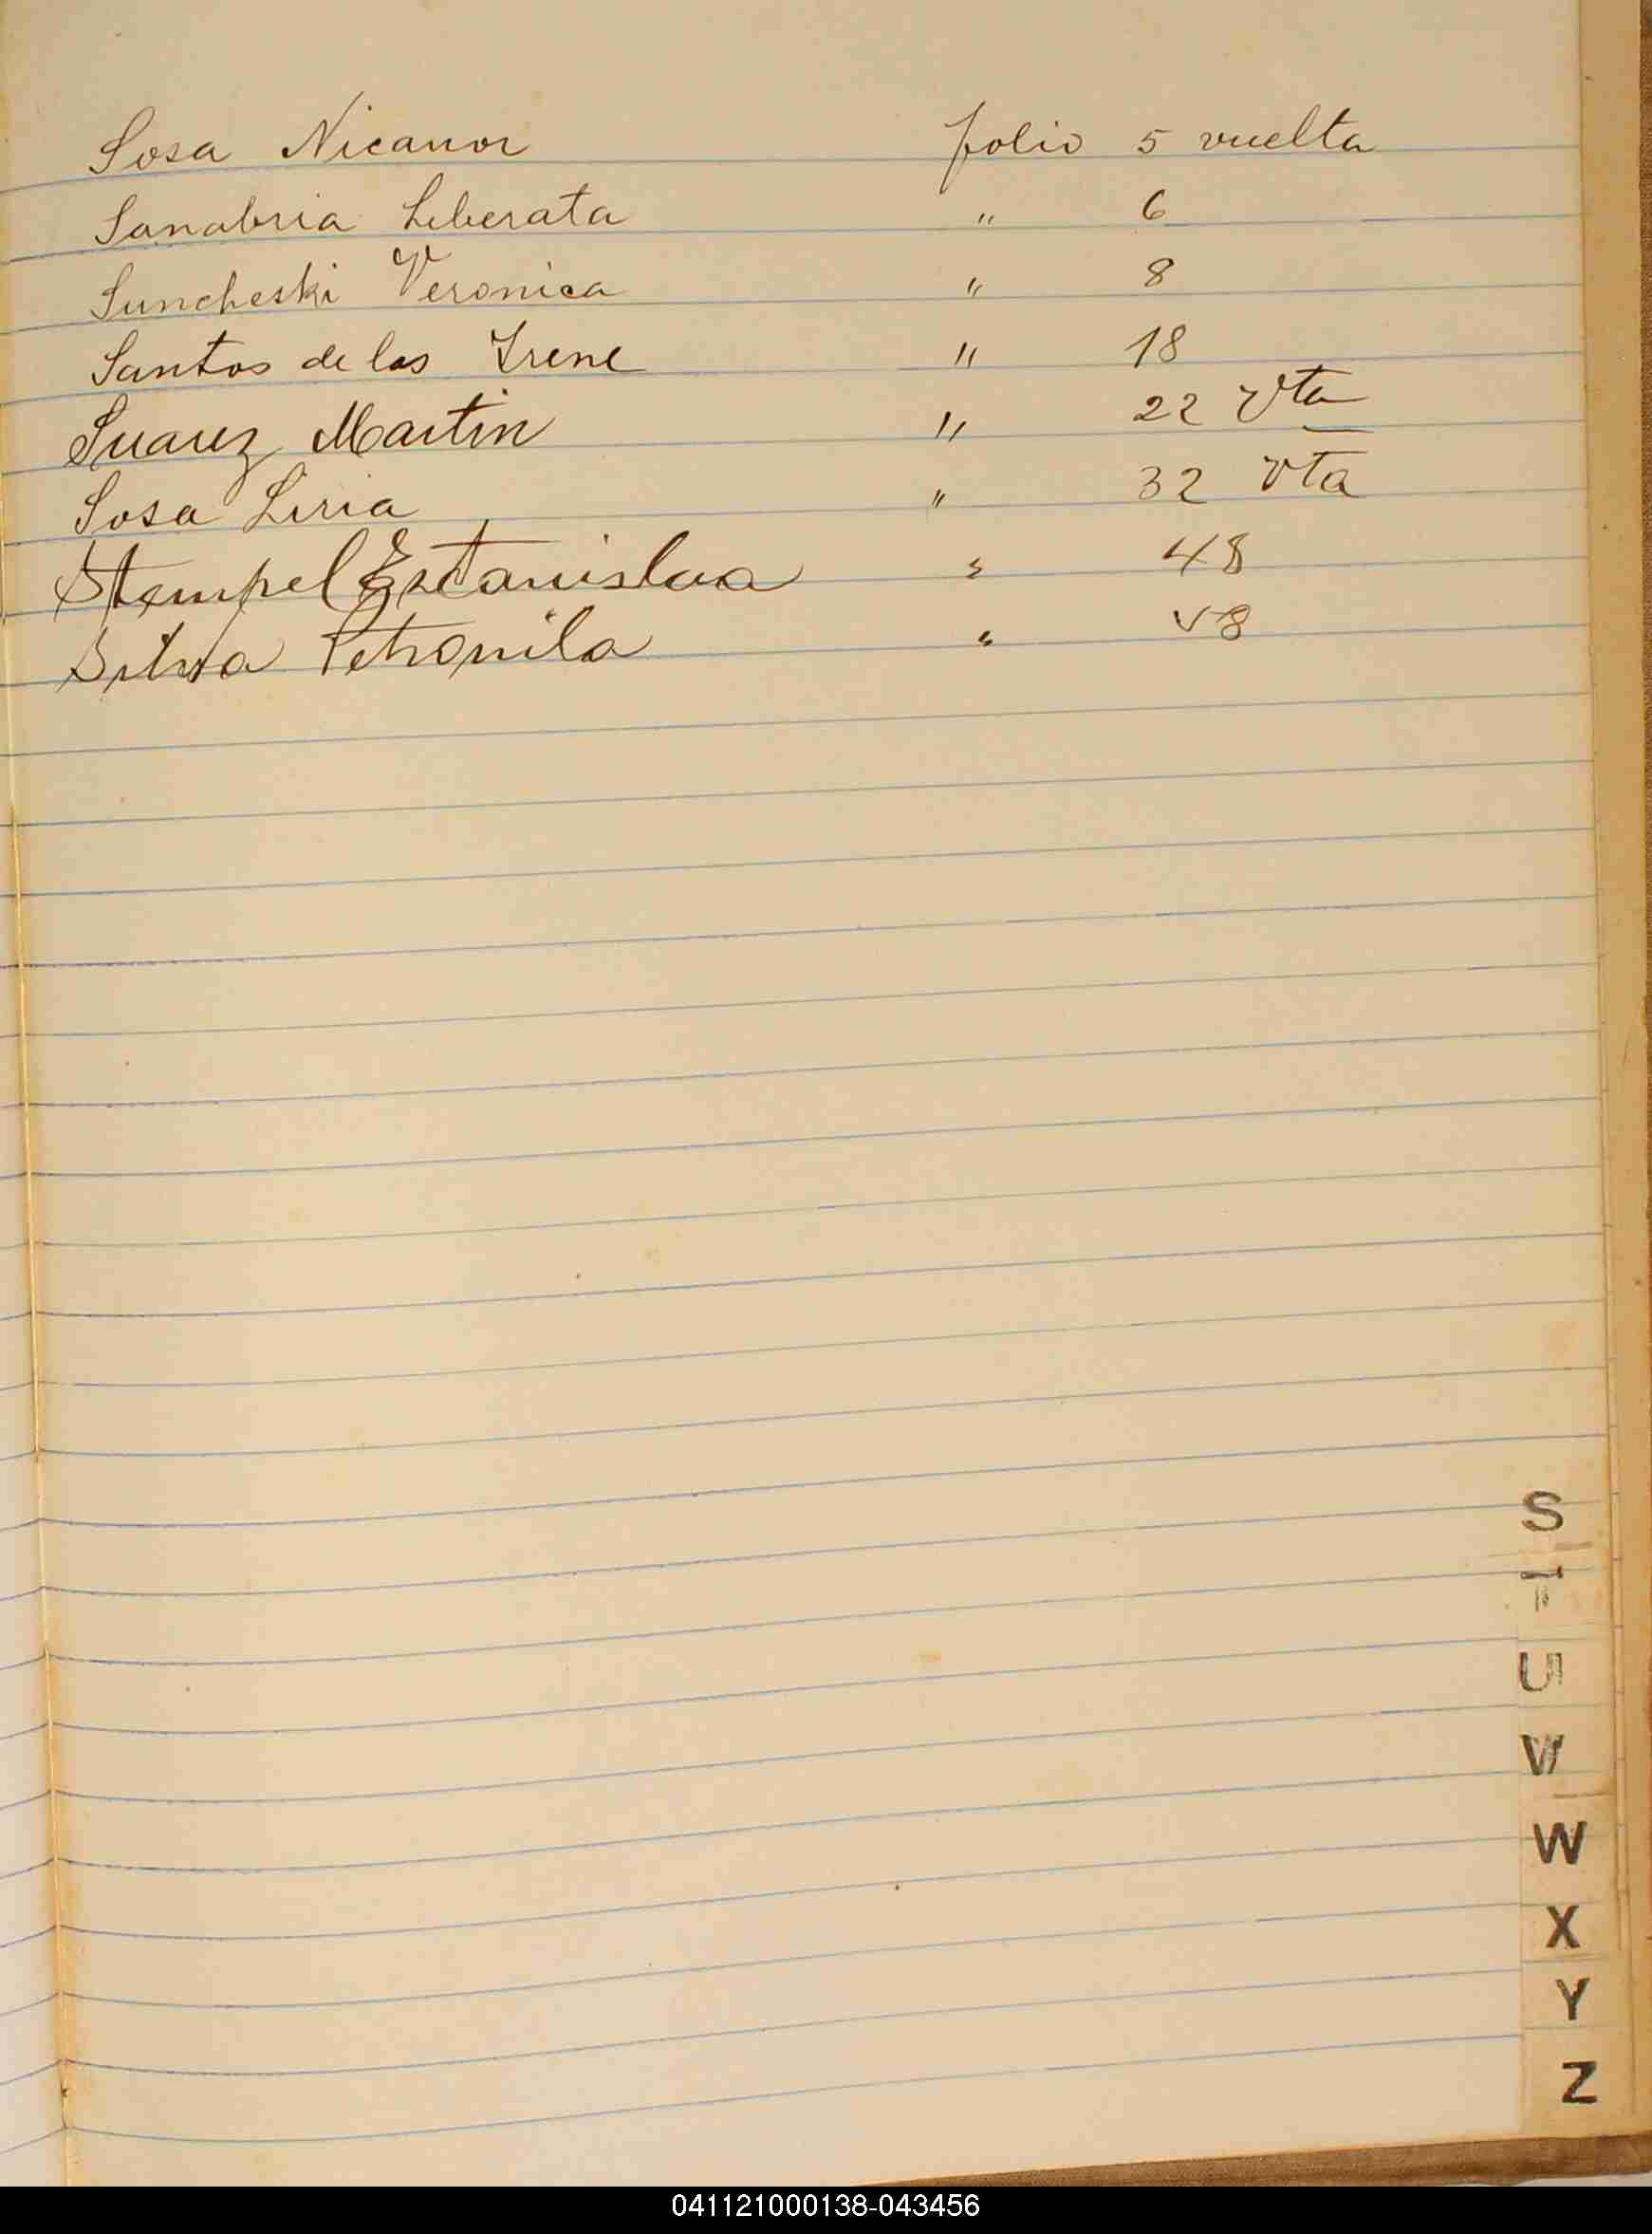 Sosa Nicanor folio 5 vuelta
Sanabria Liberata " 6
Suncheski Veronica " 8
Santos de los Irene " 18
Suarez Martin " 22 Vta
Sosa Liria " 32 Vta
Stempel Estanislaa " 48
Silva Petronila " 48
S
T
U
V
W
X
Y
Z
041121000138-043456